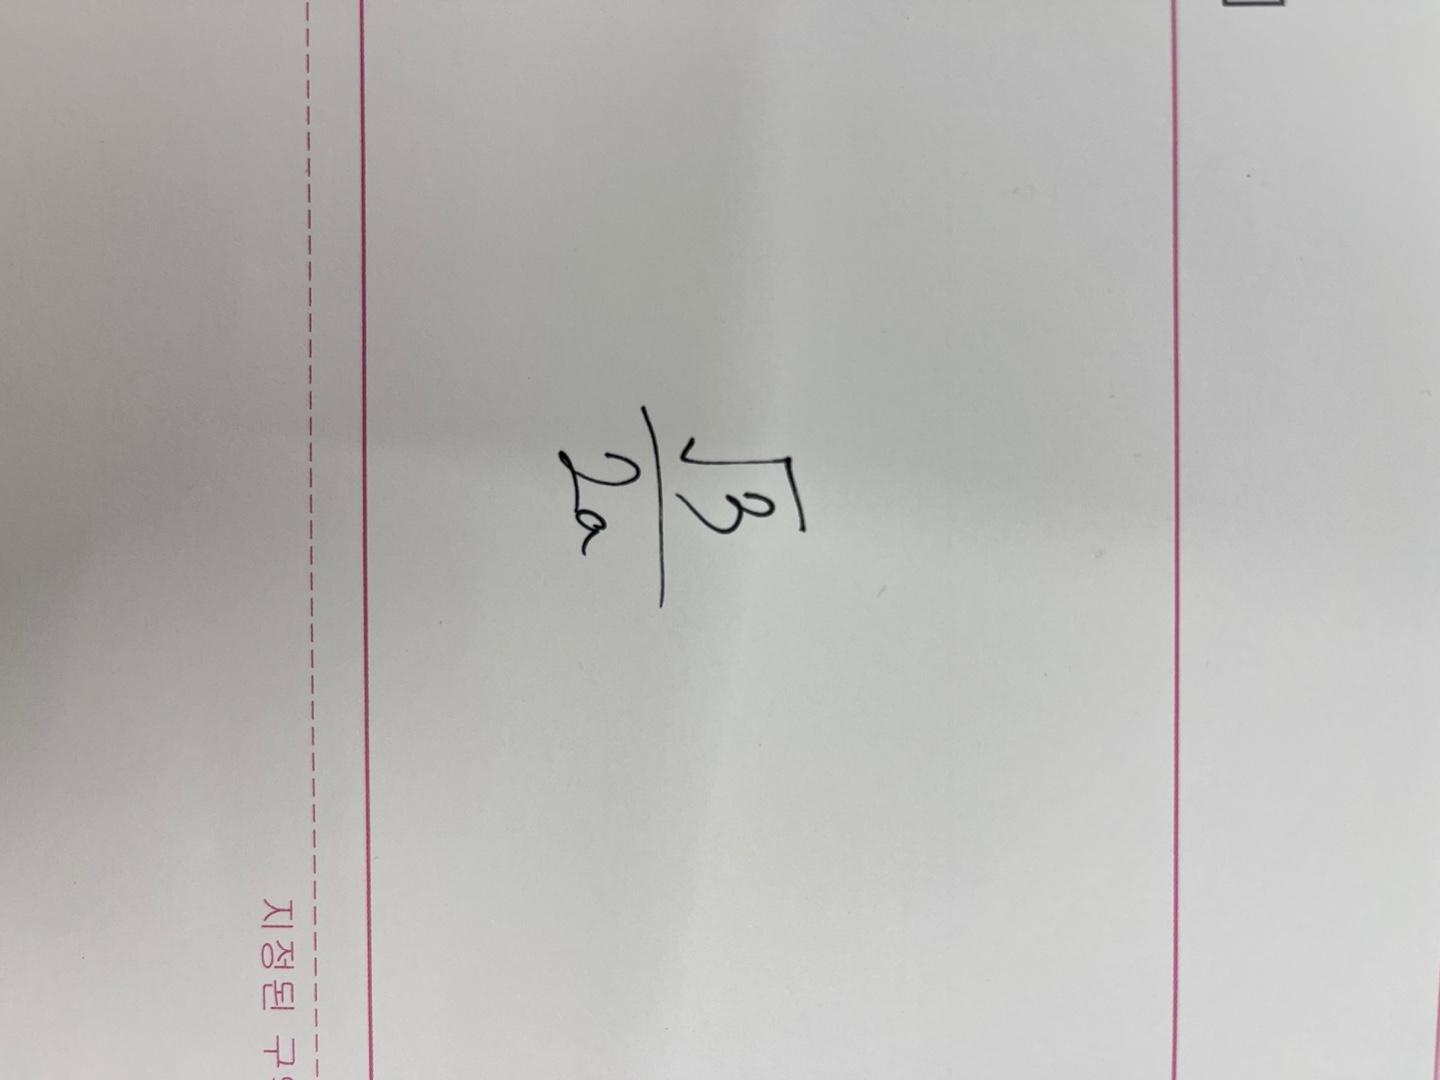 √3
2a
지정된 구